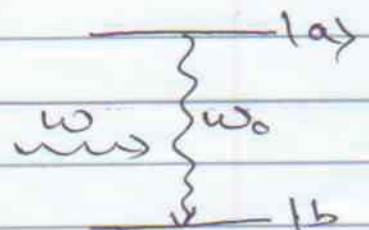 |a⟩
ω ω₀
|b